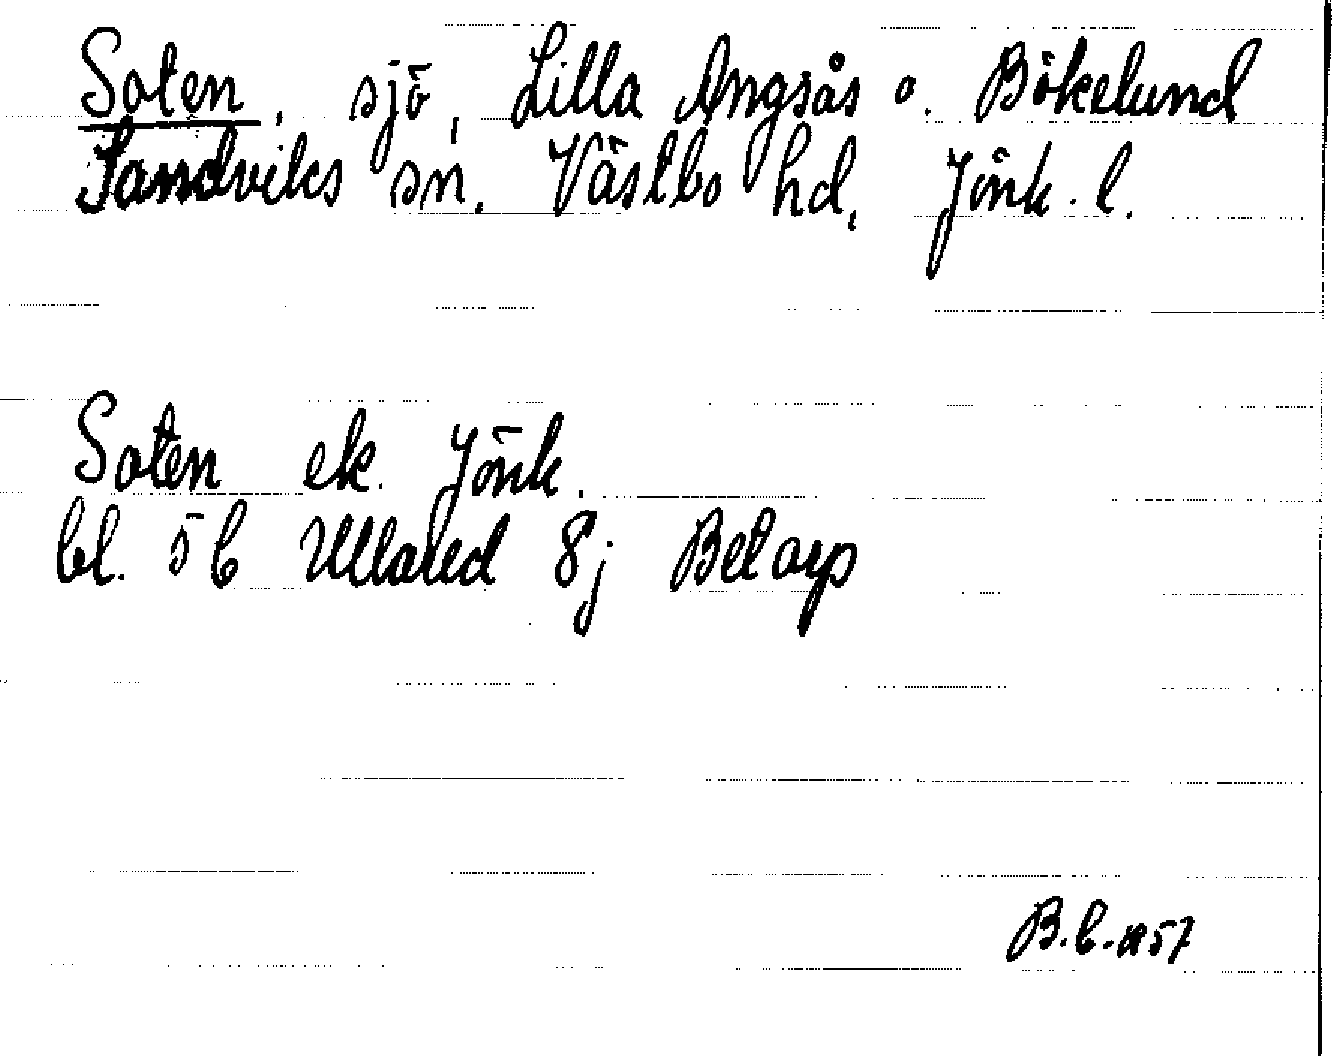 Soten, sjö, Lilla Ängsås o. Bökelund
Sandviks sn. Västbo hd, Jönk. l.
Soten ek. Jönk.
bl. 5b Ullared 8j Betarp
B.E. 1957